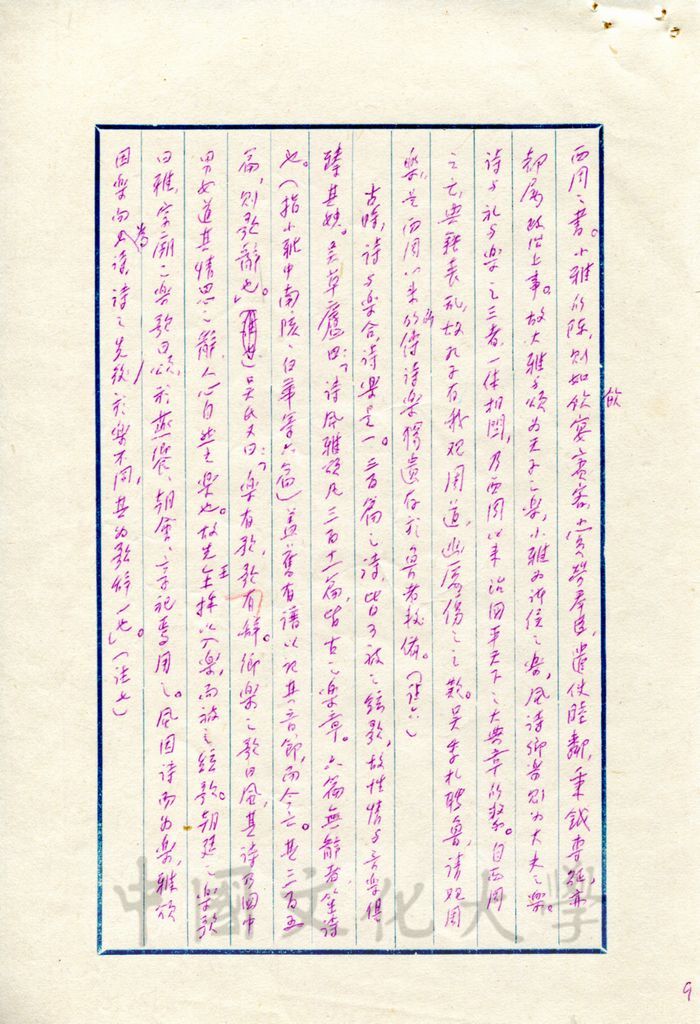 西周之書。小雅所陳,則如飲宴賓客,賞勞羣臣,遣使睦鄰,秉鉞專征,亦
飲
都屬政治上事。故大雅與頌為天子之樂,小雅為諸侯之樂,風詩鄉樂則為大夫之樂。
詩與禮與樂之三者,一體相関,乃西周以來治國平天下之大典章所繫。自西周
之亡,典籍喪亂,故孔子有我觀周道,幽厲傷之之歎。吳季札聘魯,請觀周
樂,是西周以來所傳詩樂獨遺存於魯者較備。(註六)
古時,詩與樂合,詩樂是一。三百篇之詩,皆可被之絃歌,故性情與音樂俱
臻其妙。吳草廬曰:「詩風雅頌凡三百十一篇,皆古之樂章。六篇無辭者笙詩
也。(指小雅中南陔、白華等六篇)蓋舊有譜以記其音節,而今亡。其三百五
篇,則歌辭也。」吳氏又曰:「樂有歌,歌有辭。鄉樂之歌曰風,其詩乃國中
男女道其情思之辭,人心自然之樂也。故先王採以入樂,而被之絃歌。朝廷之樂歌
曰雅,宗廟之樂歌曰頌,於燕饗、朝會、享祀焉用之。風因詩而為樂,雅頌
因樂而為詩,詩之先後於樂不同,其為歌辭一也。」(註七)
9
中國文化大學